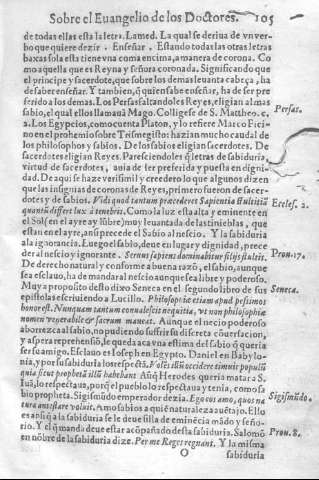 Sobre el Euangelio de los Doctores. 105
de todas ellas esta la letra. Lamed. La qual se deriua de vn ver-
bo que quiere dezir. Enseñar. Estando todas las otras letras
baxas sola esta tiene vna coma encima, a manera de corona. Co
mo aquella que es Reyna y señora coronada. Significando que
el principe y sacerdote, que sobre los demas leuanta cabeça, ha
de saber enseñar. Y tambien, q̃ quien sabe enseñar, ha de ser pre
ferido a los demas. Los Persas faltandoles Reyes, eligian al mas
Persas.
sabio, el qual ellos llamauã Mago. Colligese de S. Mattheo. c.
2. Los Egypcios, como cuenta Platon, y lo refiere Marco Fici-
no en el prohemio sobre Trismegisto: hazian mucho caudal de
los philosophos y sabios. De los sabios eligian sacerdotes. De
sacerdotes eligian Reyes. Paresciendoles q̃ letras de sabiduria,
virtud de sacerdotes, auia de ser preferida y puesta en digni-
dad. De aqui se haze verisimil y creedero lo que algunos dizen
que las insignias de coronas de Reyes, primero fueron de sacer-
dotes y de sabios. Vidi quod tantum præcederet Sapientia stultitiã
Eccles. 2.
quantũ differt lux à tenebris. Como la luz esta alta y eminente en
el Sol (en el ayre ay lũbre) muy leuantada de las tinieblas, que
estan en el ayre, ansi precede el Sabio al nescio. Y la sabiduria
a la ignorancia. Luego el sabio, deue en lugar y dignidad, prece
der al nescio y ignorante. Seruus sapiens dominabitur filijs stultis.
Prou. 17.
De derecho natural y conforme a buena razõ, el sabio, aunque
sea esclauo, ha de mandar al nescio aunque sea libre y poderoso.
Muy a proposito desto dixo Seneca en el segundo libro de sus
Seneca.
epistolas escriuiendo a Lucillo. Philosophiæ etiam apud pessimos
honor est. Nunquam tantum conualescet nequitia, vt non philosophiæ
nomen venerabile & sacrum maneat. Aunque el necio poderoso
aborrezca al sabio, no pudiendo suffrir su discreta cõuersacion,
y aspera reprehensiõ, le queda aca vna estima del sabio q̃ querria
ser su amigo. Esclauo es Ioseph en Egypto. Daniel en Babylo-
nia, y por su sabiduria los respectã.
quia sicut prophetã illũ habebant. Aũq̃ Herodes queria matar a S.
Iuã, lo respetaua, porq̃ el pueblo lo respectaua y tenia, como sa
bio propheta. Sigismũdo emperador dezia. Ego eos amo, quos na
Sigismũdo.
tura antestare voluit. Amo sabios a quiẽ naturaleza auẽtajo. Ello
es ansi q̃ a la sabiduria se le deue silla de eminẽcia mãdo y seño-
rio. Y el q̃ manda deue estar acõpañado desta sabiduria. Salomõ
Prou. 8.
en nõbre de la sabiduria dize. Per me Reges regnant. Y la misma
O
sabiduria